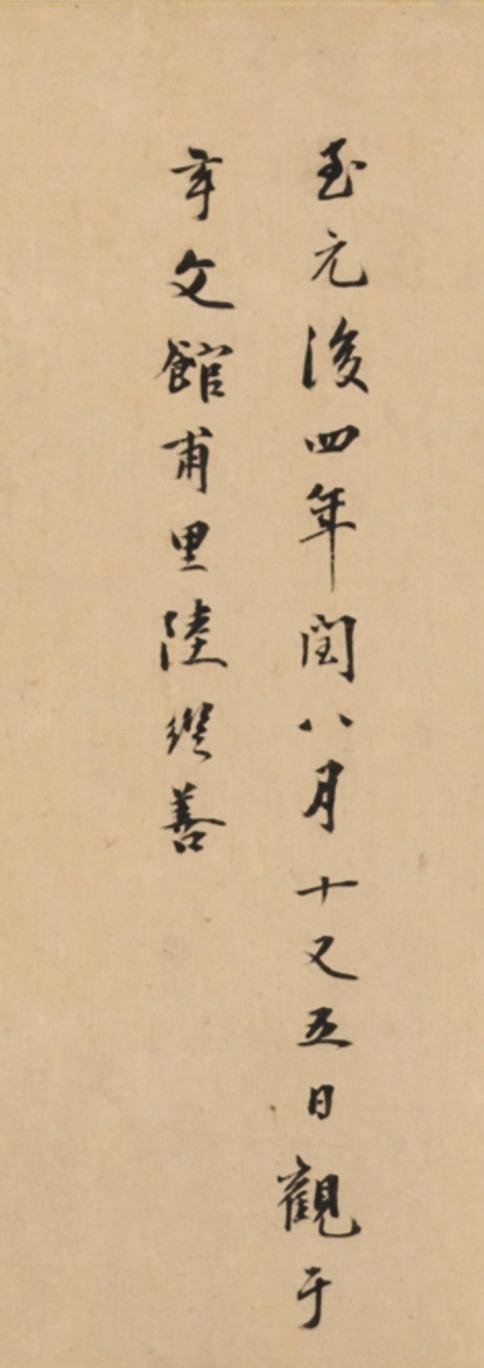 至元後四年閏八月十又五日觀于
文館甫里陸繼善